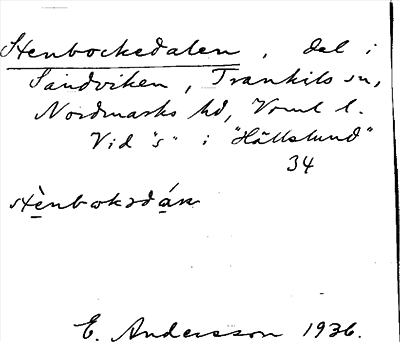 Stenbockedalen, dal i
Sandviken, Trankils sn,
Nordmarks hd, Vrml l.
Vid "s" i "Hällslund"
34
stènbokədáɳ
E. Andersson 1936.